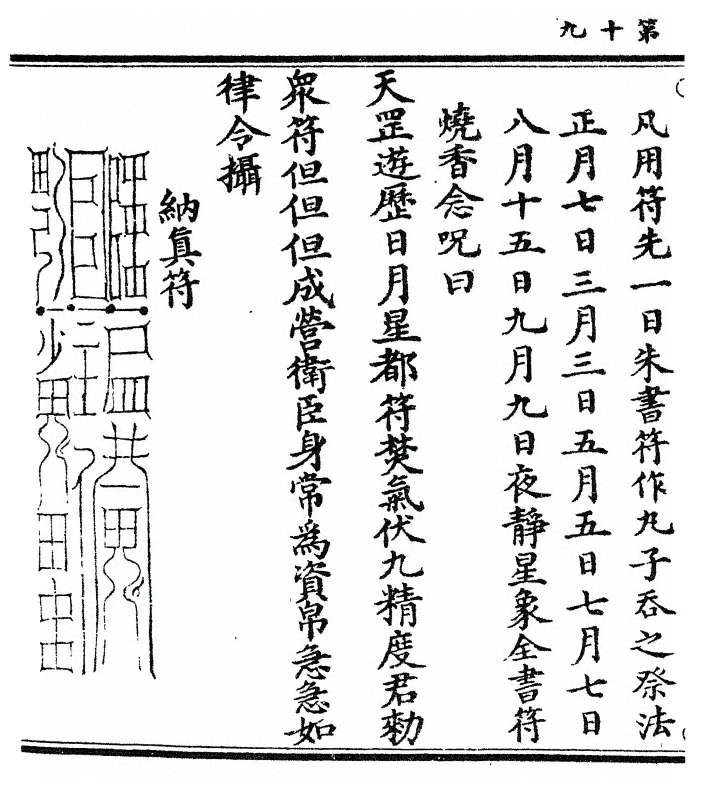 第十九
凡用符先一日朱書符作丸子吞之祭法
正月七日三月三日五月五日七月七日
八月十五日九月九日夜靜星象全書符
燒香念呪曰
天罡遊歷日月星都符焚氣伏九精度君勑
衆符但但但成營衛臣身常為資帛急急如
律令攝
納眞符